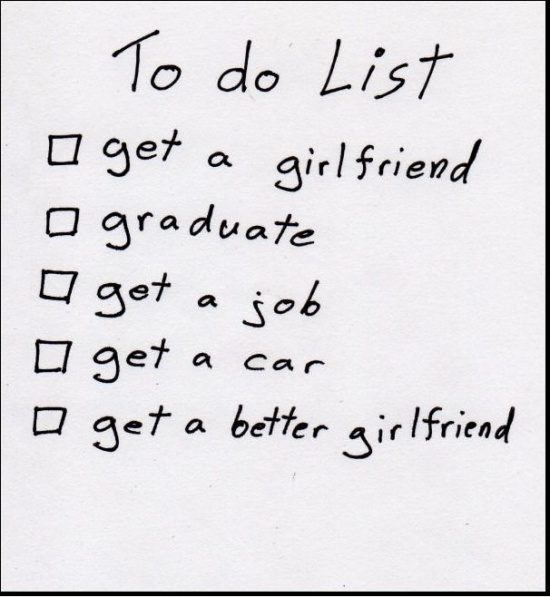 To do List
get a girlfriend
graduate
get a job
get a car
get a better girlfriend